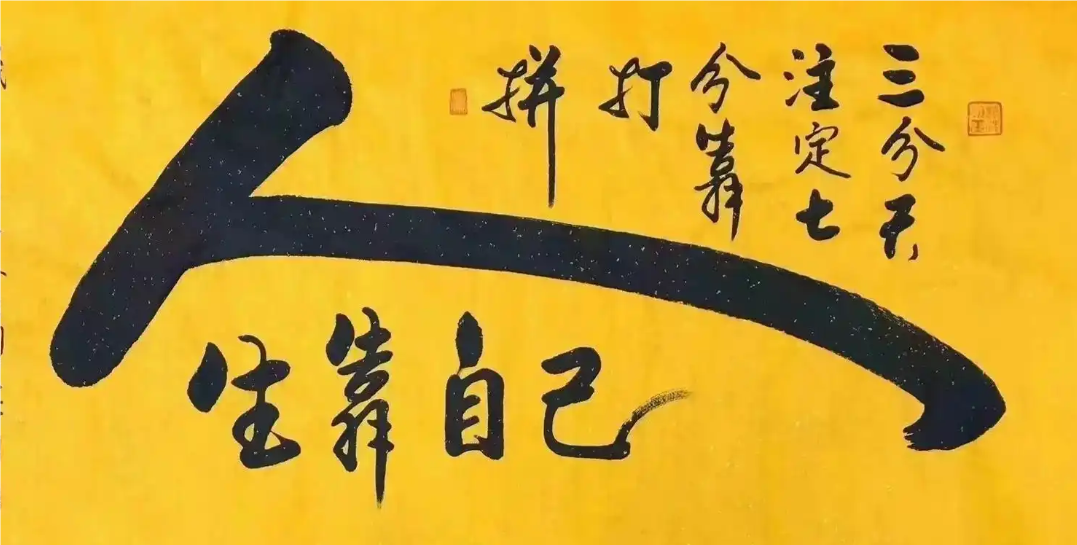 人
生靠自己
三分天
注定七
分靠
打
拼